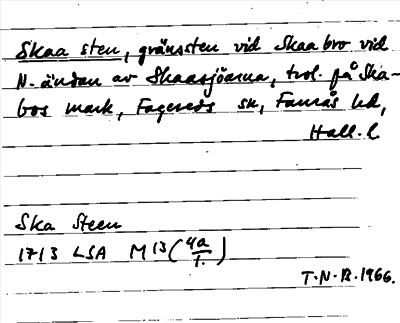 Skaa sten, gränssten vid Skaa bro vid
N. ändan av Skaasjöarna, trol. på Ska-
bos mark, Fagereds sn, Faurås hd,
Hall. l
Ska Steen
1713 LSA M 13 (4a/1.)
T.N.B. 1966.